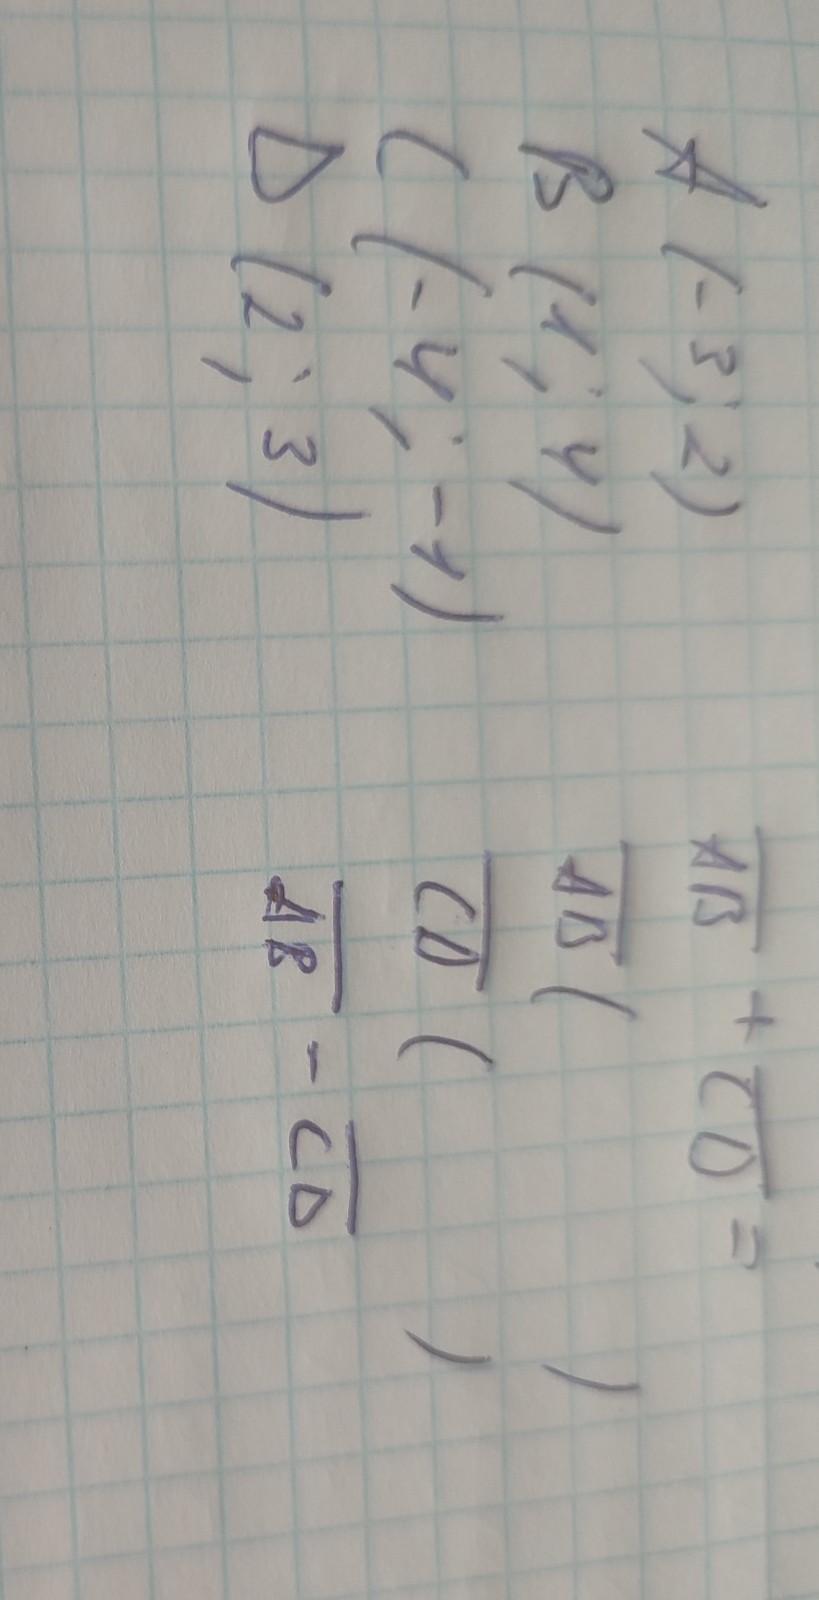 A (-3; 2)
B (1; 4)
C (-4; -1)
D (2; 3)
AB + CD =
AB (          )
CD (          )
AB - CD